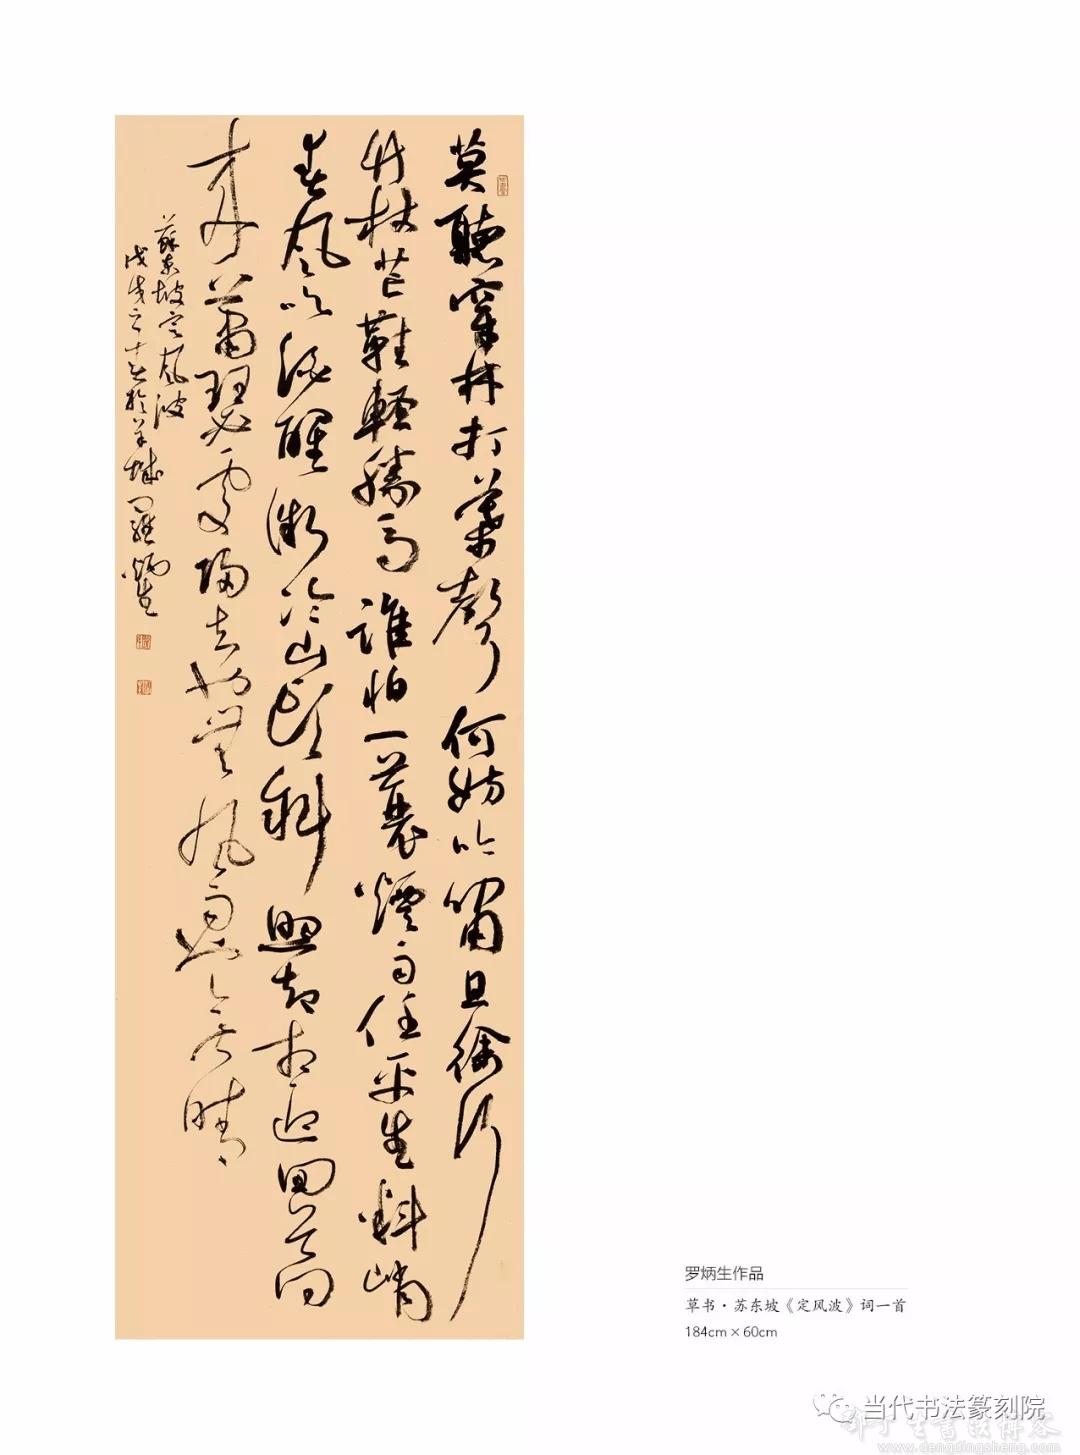 莫聽穿林打葉聲何妨吟嘯且徐行
竹杖芒鞋輕勝馬誰怕一蓑煙雨任平生料峭
春風吹酒醒微冷山頭斜照却相迎回首向
来蕭瑟處歸去也無風雨也无晴
蘇東坡定風波
戊戌之春於羊城羅炳生
罗炳生作品
草书·苏东坡《定风波》词一首
184cm×60cm
当代书法篆刻院
邓丁生书法博客
www.dengdingsheng.com